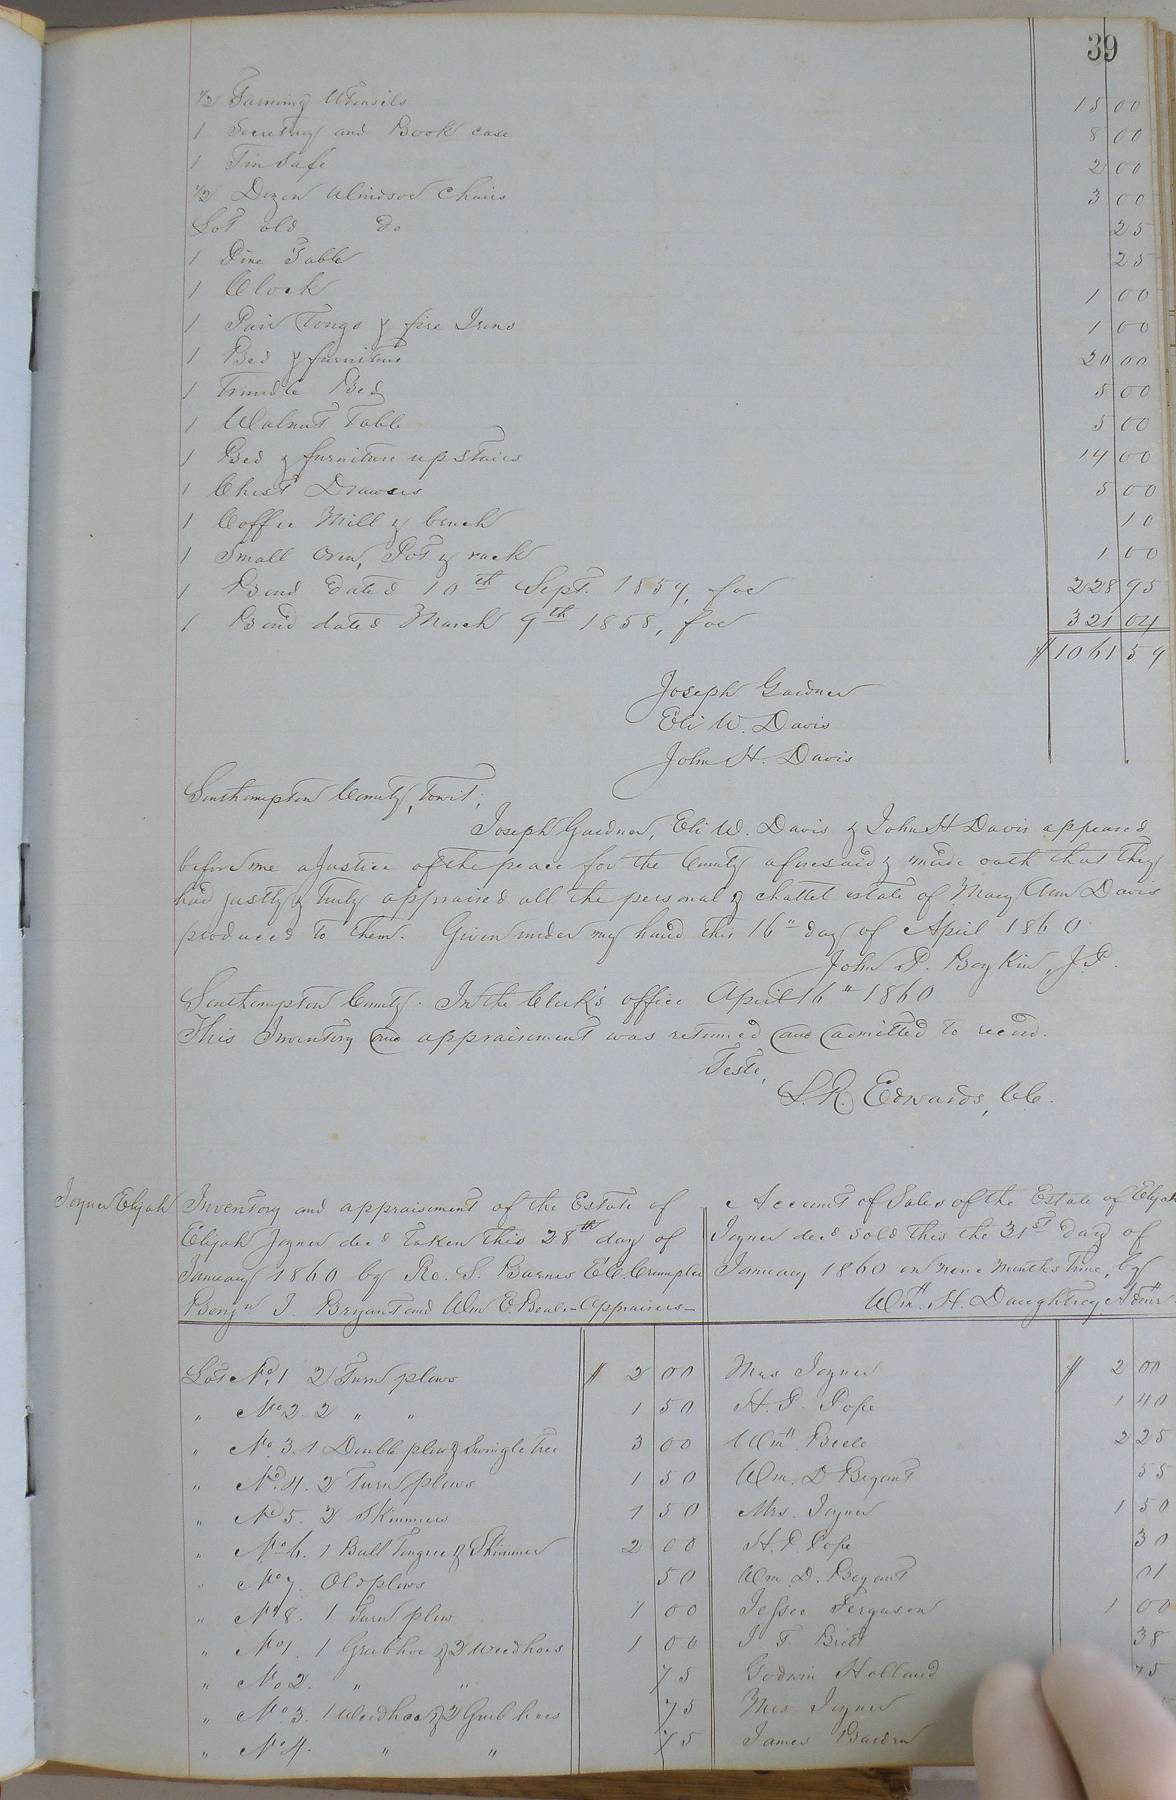 39
1/2 Farming Utensils 15 00
1 Secretary and Book case 8 00
1 Tin Safe 2 00
1/2 Dozen Windsor Chairs 3 00
Lot old do 25
1 Pine Table 25
1 Clock 1 00
1 Pair Tongs & fire Irons 1 00
1 Bed & furniture 20 00
1 Trundle Bed 5 00
1 Walnut Table 5 00
1 Bed & furniture up stairs 14 00
1 Chest Drawers 5 00
1 Coffee Mill & bench 10
1 Small Oven, Pot & rack 1 00
1 Bond dated 10th Sept. 1859, for 228 95
1 Bond dated March 9th 1858, for 321 04
$1061 59
Joseph Gardner
Eli W. Davis
John H. Davis
Southampton County, towit;
Joseph Gardner, Eli W. Davis & John H Davis appeared
before me a Justice of the peace for the County aforesaid & made oath that they
had justly & truly appraised all the personal & chattel estate of Mary Ann Davis
produced to them. Given under my hand this 16" day of April 1860.
John P. Boykin, J.P.
Southampton County. In the Clerk's office April 16" 1860
This Inventory and appraisement was returned and admitted to record.
Teste,
L. R. Edwards, CC.
Joyner Elijah
Inventory and appraisement of the Estate of
Elijah Joyner decd taken this 28th day of
January 1860 by Ro. S. Barnes E.C. Crumpler
Benjn J. Bryant and Wm E. Beale - Appraisers -
Account of Sales of the Estate of Elijah
Joyner decd sold this the 31st day of
January 1860 on nine months time, by
Wm H. Daughtrey Admr
Lot No. 1 2 Turn plows $ 2 00 Mrs Joyner $ 2 00
" No 2. 2 " " 1 50 H. P. Pope 1 40
" No. 3. 1 Double plow & Swingle Tree 3 00 Wm Beale 2 25
" No. 4. 2 Turn plows 1 50 Wm. D Bryant 55
" No 5. 2 Skimmers 1 50 Mrs. Joyner 1 50
" No 6. 1 Bull Tongue & Skimmer 2 00 H. P. Pope 30
" No 7. Old plows 50 Wm. D. Bryant 01
" No 8. 1 Turn plow 1 00 Jessee Ferguson 1 00
" No 1. 1 Grub hoe & 2 weed hoes 1 00 J. T. Britt 38
" No 2. " " 75 Godwin Holland 75
" No 3. 1 Weed hoe & 2 Grub hoes 75 Mrs Joyner
" No 4. " " 75 James Barden